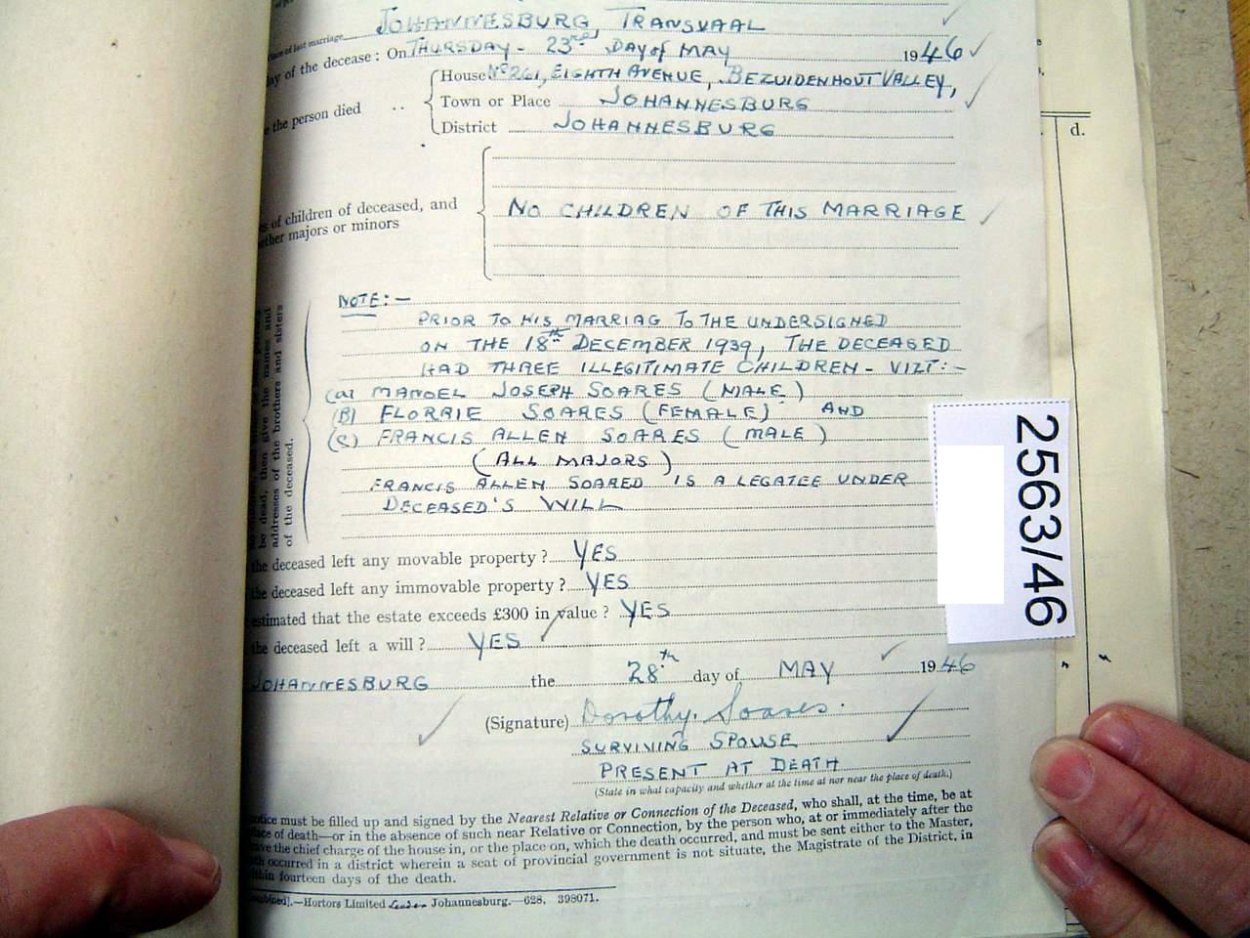 JOHANNESBURG, TRANSVAAL
of last marriage
ay of the decease : On THURSDAY - 23rd DAY of MAY 1946
e the person died
House No 261, EIGHTH AVENUE, BEZUIDENHOUT VALLEY,
Town or Place JOHANNESBURG
District JOHANNESBURG
d.
of children of deceased, and
ther majors or minors
NO CHILDREN OF THIS MARRIAGE
be dead, then give the names and
addresses of the brothers and sisters
of the deceased.
NOTE:-
PRIOR TO HIS MARRIAG TO THE UNDERSIGNED
ON THE 18th DECEMBER 1939, THE DECEASED
HAD THREE ILLEGITIMATE CHILDREN - VIZT:-
(a) MANOEL JOSEPH SOARES (MALE)
(B) FLORRIE SOARES (FEMALE) AND
(C) FRANCIS ALLEN SOARES (MALE)
(ALL MAJORS)
FRANCIS ALLEN SOARED IS A LEGATEE UNDER
DECEASED'S WILL
2563/46
the deceased left any movable property ? YES
the deceased left any immovable property ? YES
estimated that the estate exceeds £300 in value ? YES
the deceased left a will ? YES
JOHANNESBURG the 28th day of MAY 1946
(Signature) Dorothy. Soares.
SURVIVING SPOUSE
PRESENT AT DEATH
(State in what capacity and whether at the time at nor near the place of death.)
otice must be filled up and signed by the Nearest Relative or Connection of the Deceased, who shall, at the time, be at
lace of death—or in the absence of such near Relative or Connection, by the person who, at or immediately after the
ave the chief charge of the house in, or the place on, which the death occurred, and must be sent either to the Master,
th occurred in a district wherein a seat of provincial government is not situate, the Magistrate of the District, in
thin fourteen days of the death.
—Hortors Limited Johannesburg.—628, 398071.